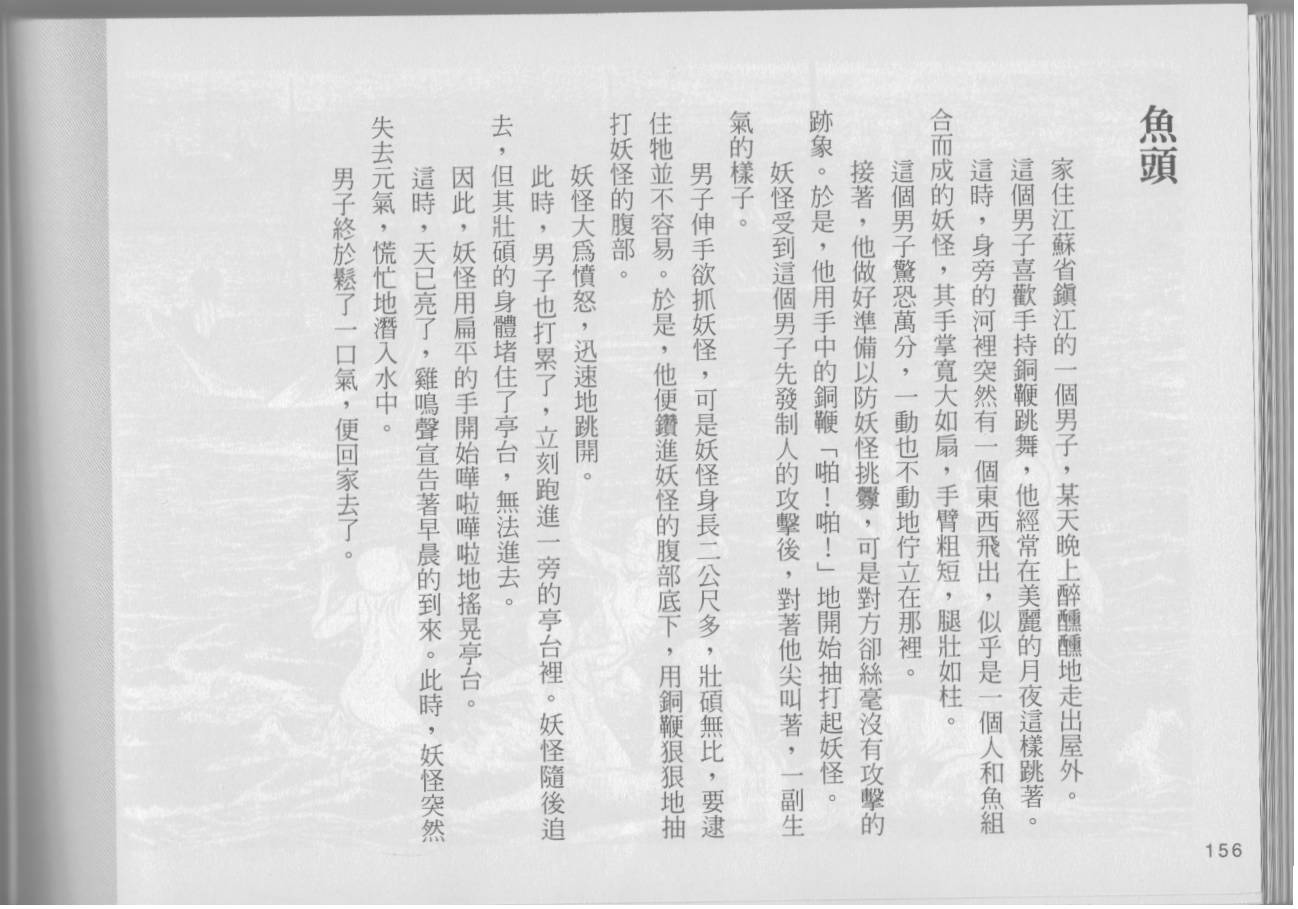 魚頭
家住江蘇省鎭江的一個男子，某天晚上醉醺醺地走出屋外。
這個男子喜歡手持銅鞭跳舞，他經常在美麗的月夜這樣跳著。
這時，身旁的河裡突然有一個東西飛出，似乎是一個人和魚組
合而成的妖怪，其手掌寬大如扇，手臂粗短，腿壯如柱。
這個男子驚恐萬分，一動也不動地佇立在那裡。
接著，他做好準備以防妖怪挑釁，可是對方卻絲毫沒有攻擊的
跡象。於是，他用手中的銅鞭「啪！啪！」地開始抽打起妖怪。
妖怪受到這個男子先發制人的攻擊後，對著他尖叫著，一副生
氣的樣子。
男子伸手欲抓妖怪，可是妖怪身長二公尺多，壯碩無比，要逮
住牠並不容易。於是，他便鑽進妖怪的腹部底下，用銅鞭狠狠地抽
打妖怪的腹部。
妖怪大爲憤怒，迅速地跳開。
此時，男子也打累了，立刻跑進一旁的亭台裡。妖怪隨後追
去，但其壯碩的身體堵住了亭台，無法進去。
因此，妖怪用扁平的手開始嘩啦嘩啦地搖晃亭台。
這時，天已亮了，雞鳴聲宣告著早晨的到來。此時，妖怪突然
失去元氣，慌忙地潛入水中。
男子終於鬆了一口氣，便回家去了。
156